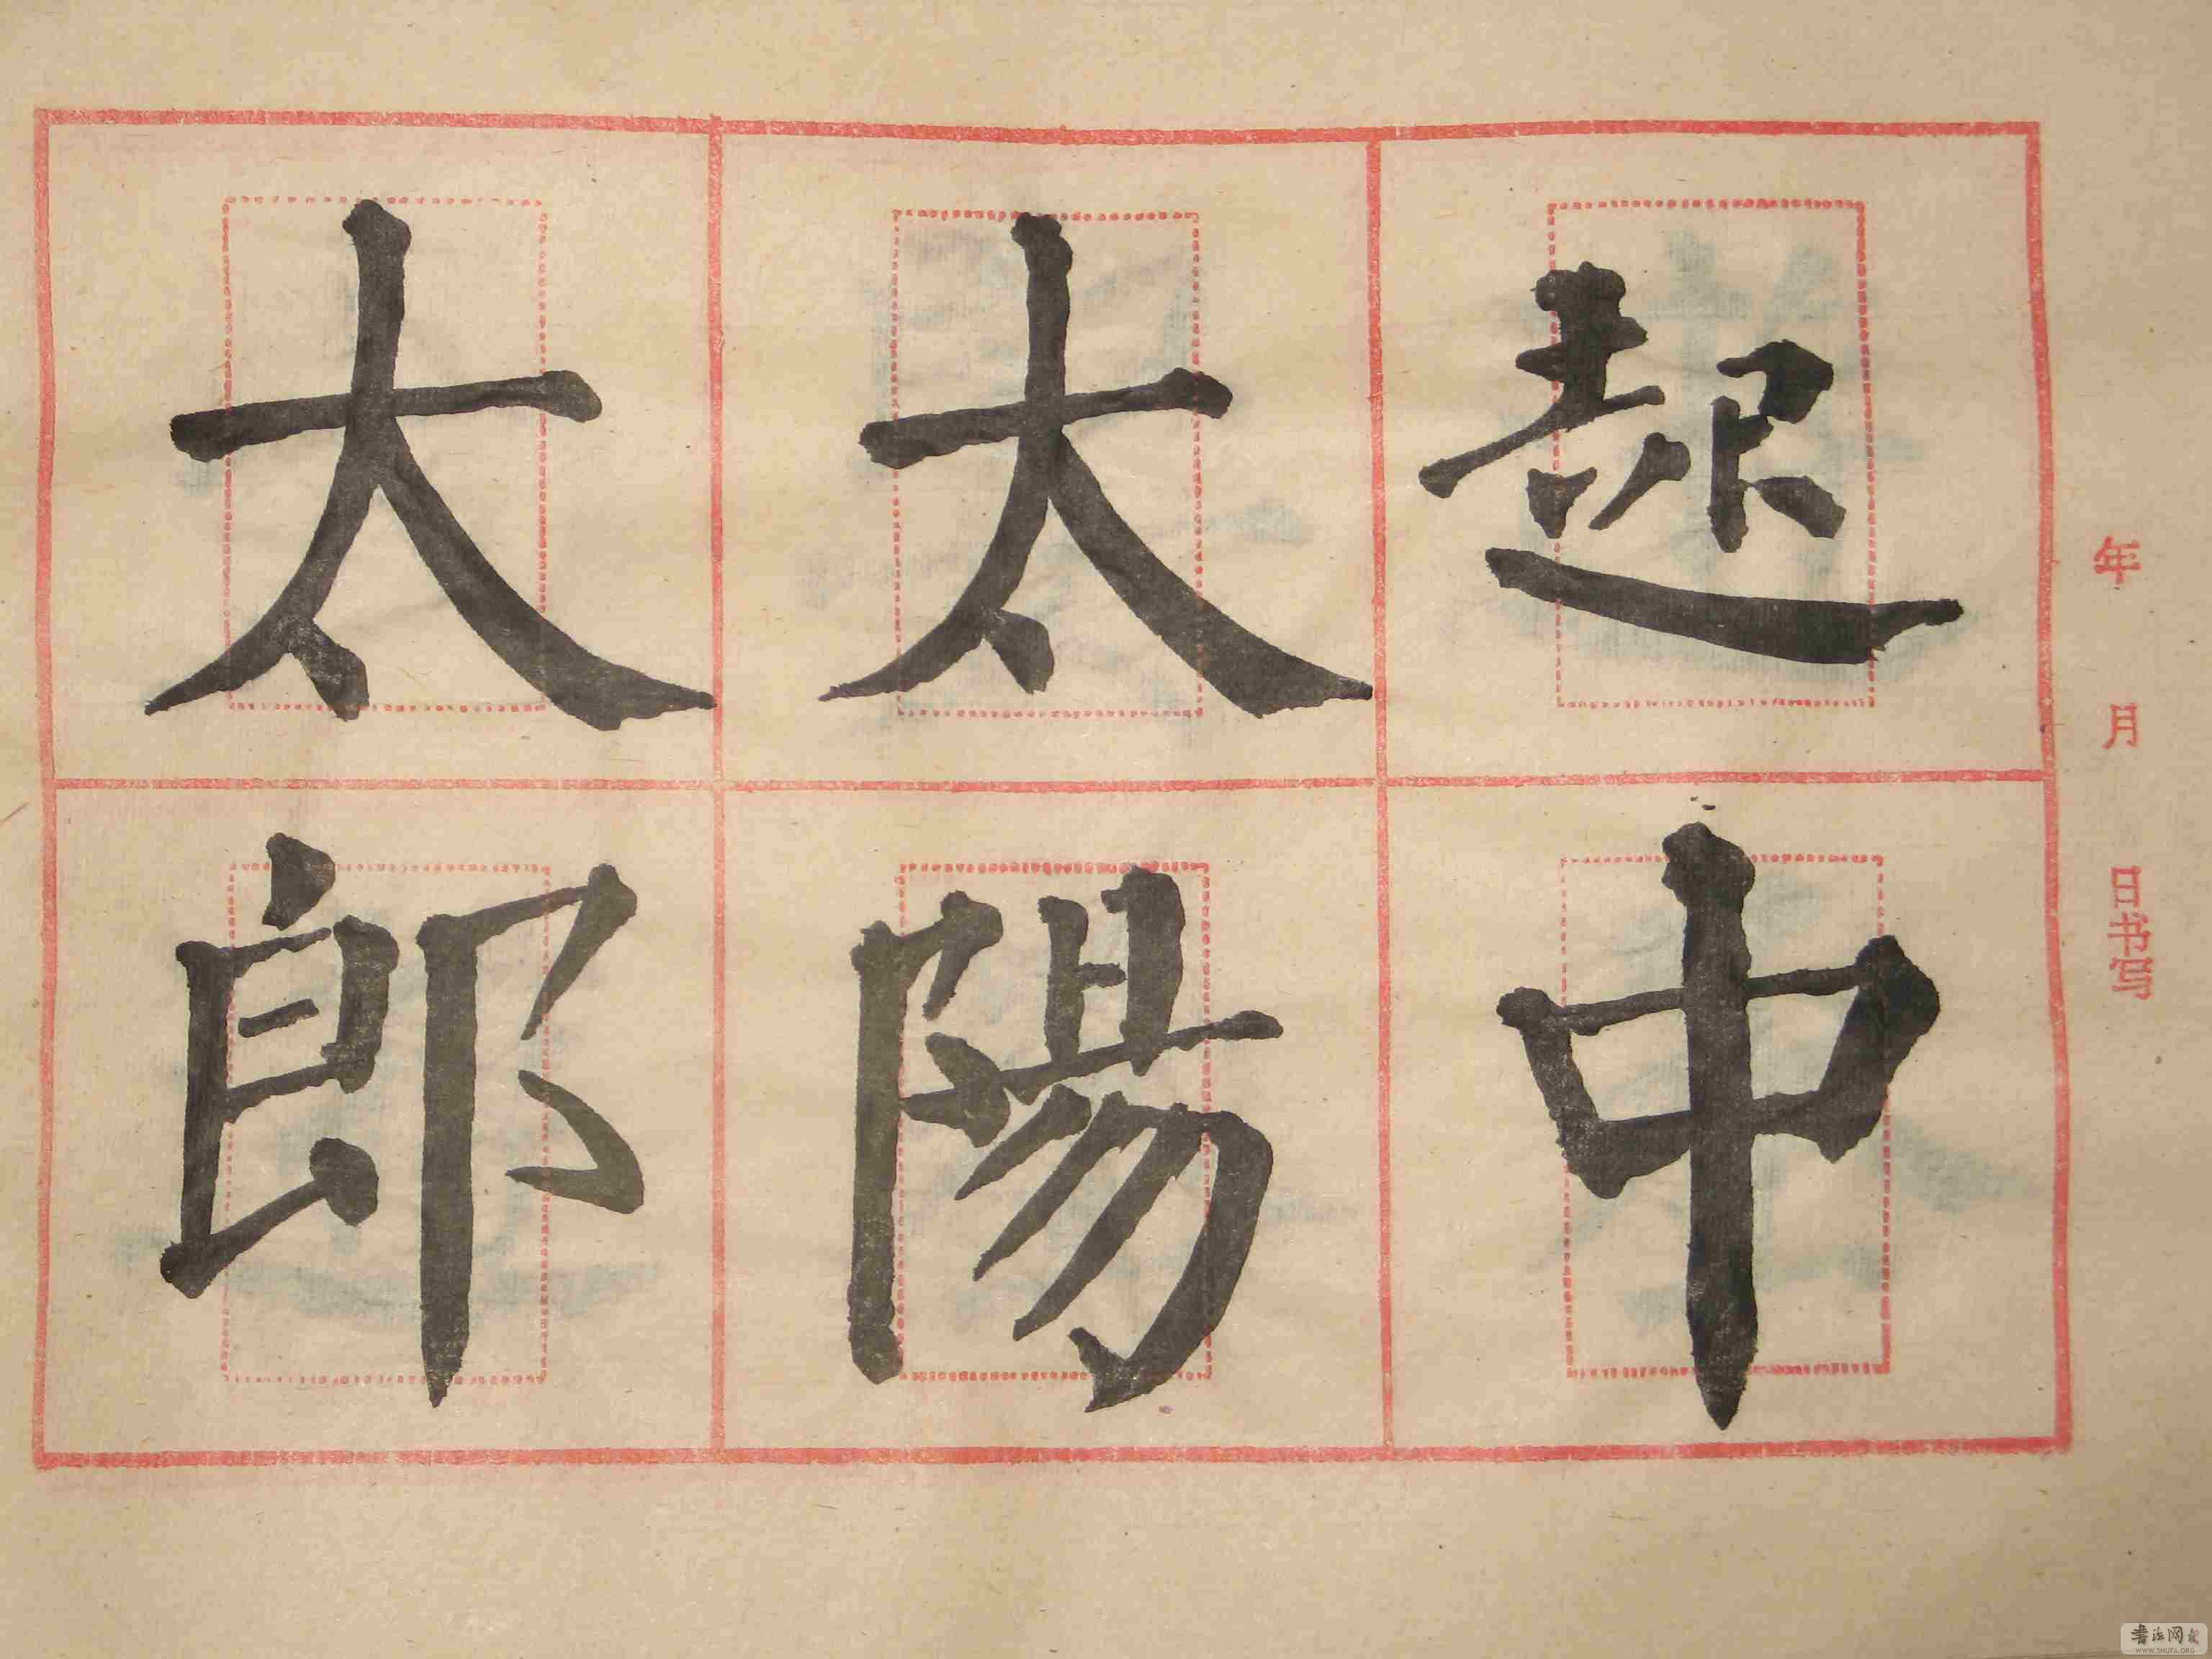 起中
太陽
太郎
年 月 日书写
书法网
WWW.SHUFA.ORG